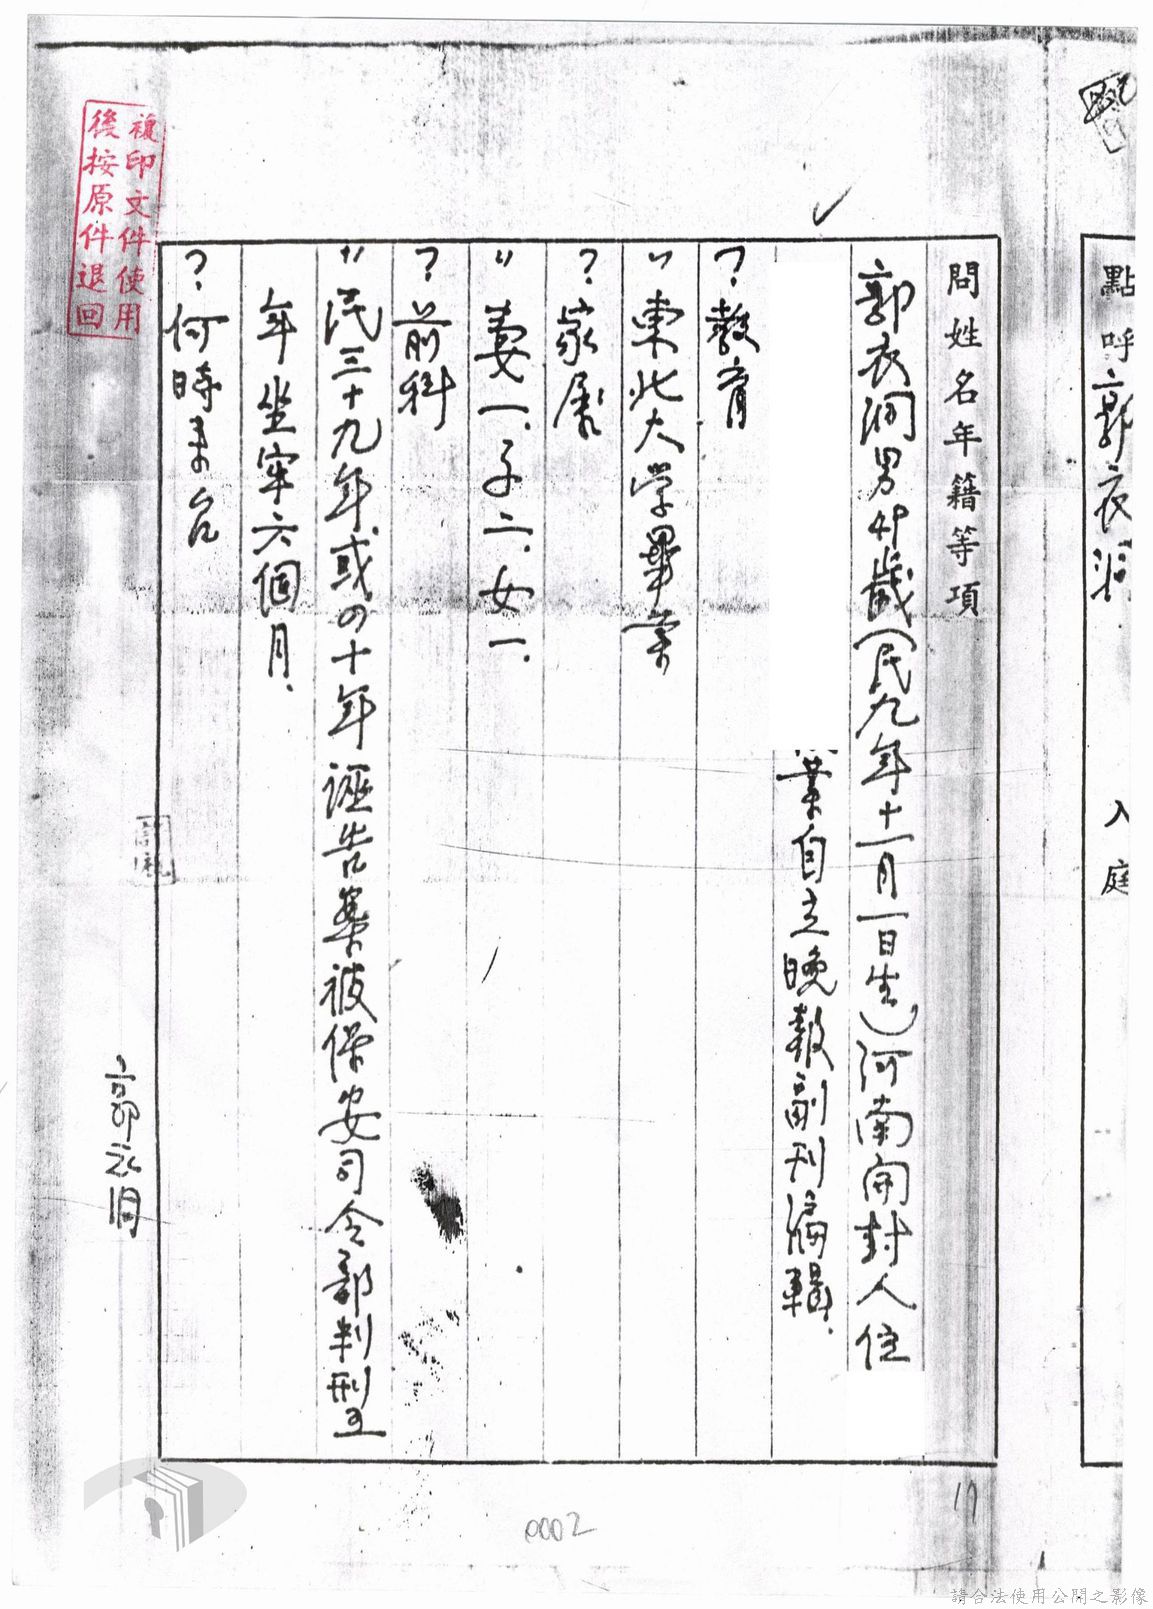 點呼郭衣洞
入庭
問姓名年籍等項
郭衣洞男49歲(民九年十一月一日生)河南開封人住
業自立晚報副刊編輯.
?教育
〃東北大学畢業
?家屬
〃妻一.子二.女一.
?前科
〃民三十九年或四十年誣告案被保安司令部判刑五
年坐牢六個月.
?何時來台
複印文件使用
後按原件退回
郭衣洞
17
0002
請合法使用公開之影像